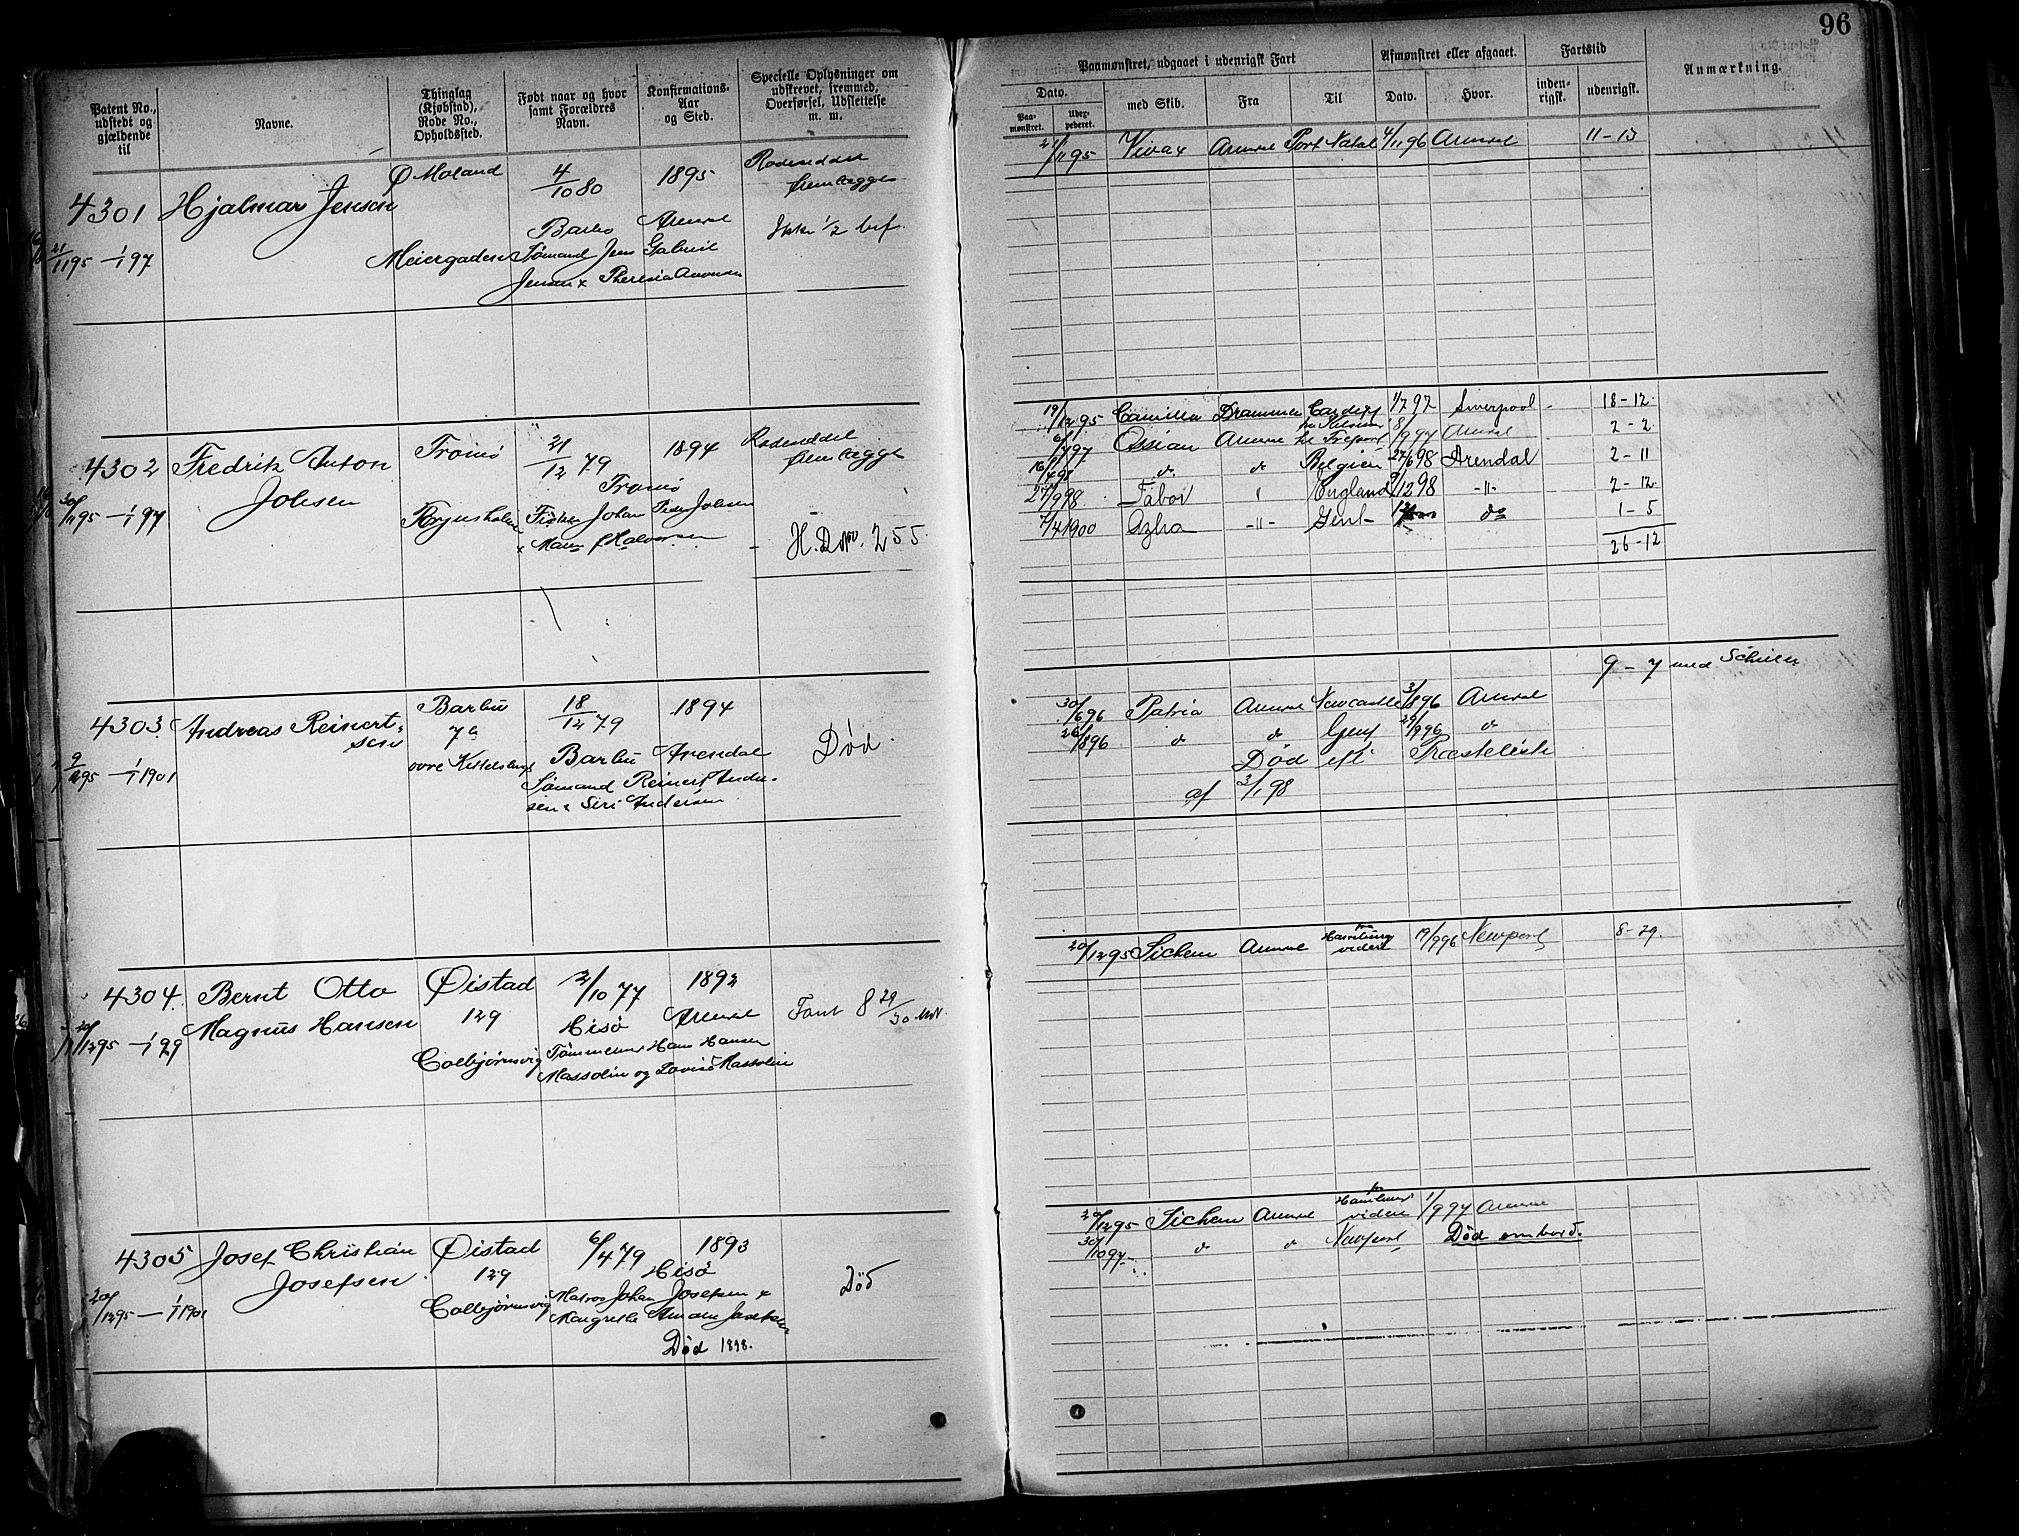 96
Patent No., udstedt og gjældende til
Navne.
Thinglag (Kjøbstad), Rode No., Opholdssted.
Født naar og hvor samt Forældres Navn.
Konfirmations-Aar og Sted.
Specielle Oplysninger om udskrevet, fremmed, Overførsel, Udslettelse m. m.
Paamønstret, udgaaet i udenrigsk Fart
Afmønstret eller afgaaet.
Fartstid
Anmærkning.
Dato.
Paa-mønstret.
med Skib.
Fra
Til
Dato.
Hvor.
inden-rigsk.
udenrigsk.
4301 Hjalmar Jensen
Ø Moland
4/10 80
1895
21/11 95 — 1/1 97
Meiergaden
Barbo
Sømand Jens Gabriel
Jensen x Theresia
Ikke 1/2 bef.
21/11 95 Vivax Arendal Port Natal 4/11 96 Arendal 11-13
4302 Fredrik Anton
Johsen
Tromø
21/12 79
Tromø
1894
30/11 95 — 1/1 97
Fisker Johan Peder Johsen
H.D. No. 255.
19/12 95 Camilla Drammen Cardiff 1/7 97 Liverpool 18-12
6/7 97 Ossian Arendal 8/9 97 Arendal 2-2
16/4 98 do do Belgien 27/6 98 Arendal 2-11
27/9 98 Tabor England 9/12 98 -"- 2-12
7/4 1900 Azha -"- Gent do 1-5
26-12
4303 Andreas Reinert-
sen
Barbu
7a
18/12 79
1894
Død.
9/12 95 — 1/1 1901
Barbu Arendal
Sømand Reinert Ander-
sen x Siri Andersen
9-7 med
30/6 96 Patria Arendal Newcastle 3/8 96 Arendal
26/8 96 do do 29/9 96 do
Død ift Præsteliste
af 3/1 98
4304. Bernt Otto
Magnus Hansen
Øistad
129
Colbjørnsvig
2/10 77
Hisø
1892
Arendal
20/12 95 — 1/1 99
Tømmermd Hans Hansen
Massolin og Lovise Massolin
Fart 8 29/30 Md.
20/12 95 Sichem Arendal Hamburg videre 19/9 96 Newport 8-29.
4305 Josef Christian
Josefsen
Øistad
129
Colbjørnsvig
6/4 79
1893
Hisø
20/12 95 — 1/1 1901
Matros Johan Josefsen x
Margrethe
Død 1898.
Død
20/12 95 Sichem Arendal videre 1/9 97 Arendal
30/10 97 do do Newport Død ombord.